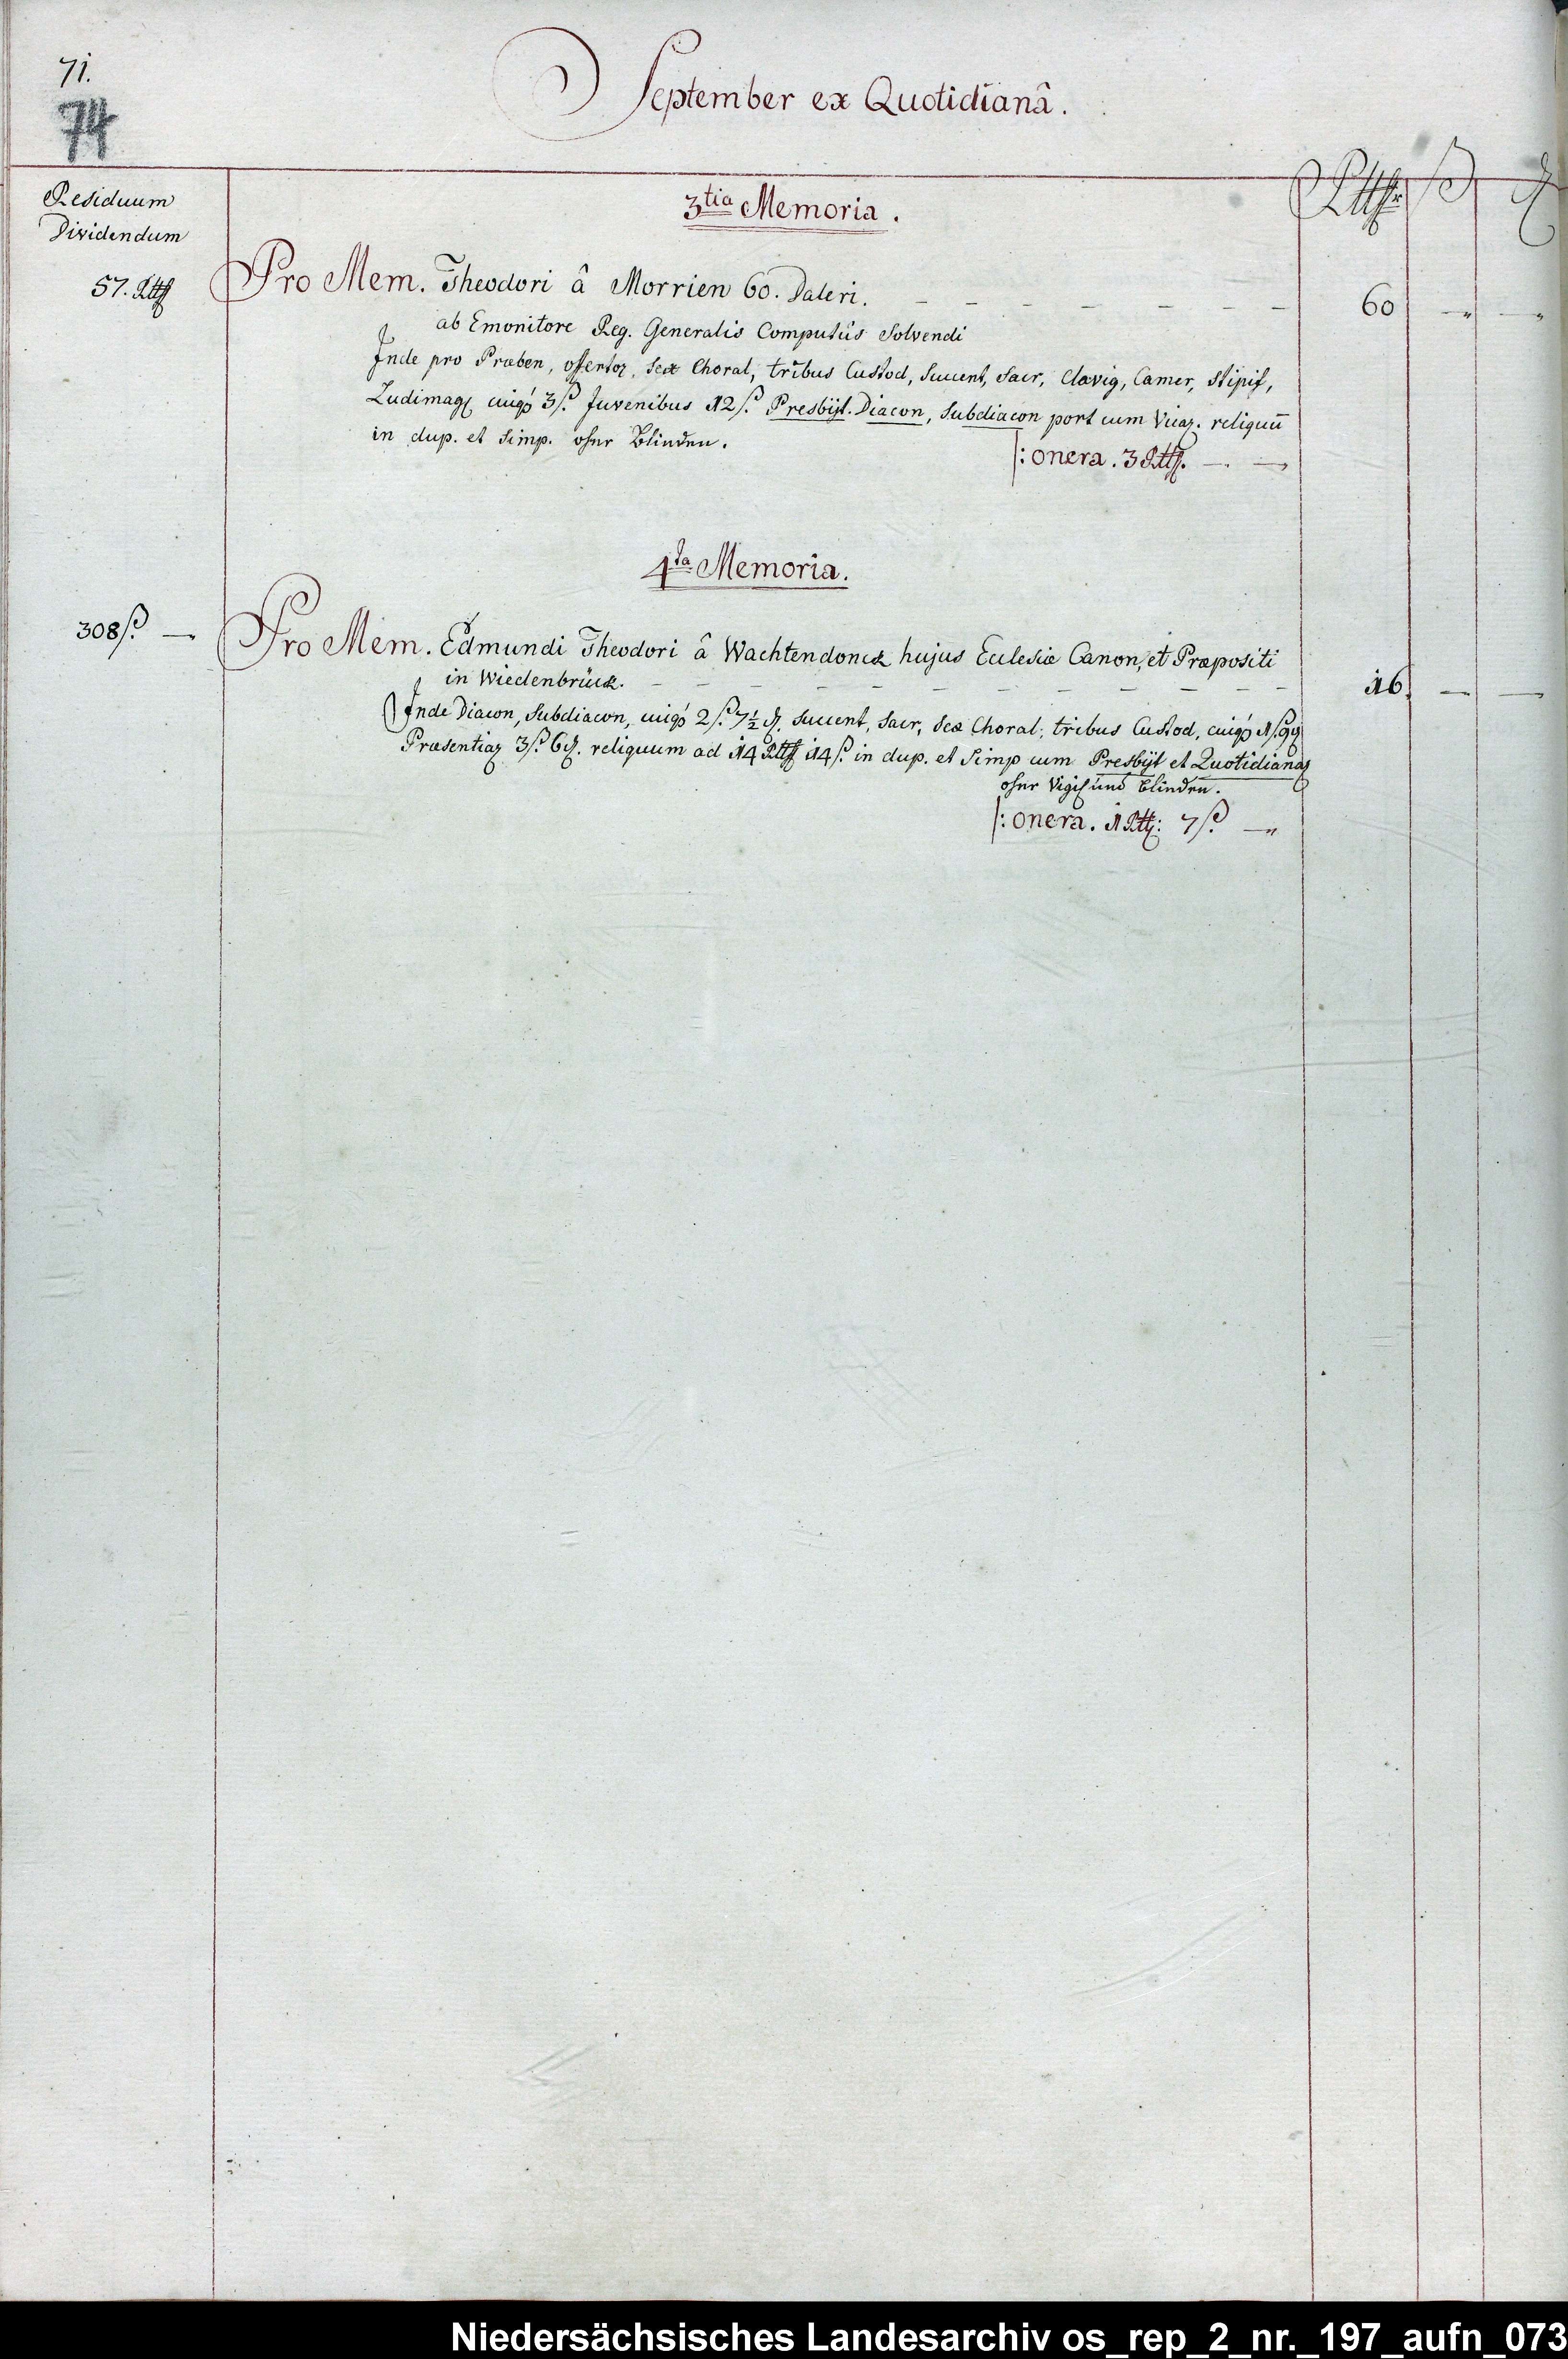 71.
74
September ex Quotidianâ.
Residuum
Dividendum
Rtlr ß ₰
3tia Memoria.
57. Rtlr Pro Mem. Theodori â Morrien 60. Daleri. 60 — —
ab Emonitore Reg. Generalis Computûs Solvendi
Inde pro Præben, offertor, Sex Choral, tribus Custod, Succent, Sacr, Clavig, Camer, Stipif,
Ludimag cuiq 3ß. Juvenibus 12ß. Presbijt. Diacon, Subdiacon port cum Vicar. reliquū
in dup. et Simp. ohne Blinden.
/: onera. 3 Rtlr. — —
4ta Memoria.
308ß. — Pro Mem. Edmundi Theodori â Wachtendonck hujus Ecclesiæ Canon, et Præpositi
in Wiedenbrück. 16. — —
Inde Diacon, Subdiacon, cuiq 2ß. 7½ ₰. Succent, Sacr, Sex Choral, tribus Custod, cuiq 1ß 9₰
Præsentiar 3ß. 6₰. reliquum ad 14 Rtlr 14ß. in dup. et Simp cum Presbijt et Quotidianar
ohne Vigil und Blinden.
/: onera. 1 Rtlr: 7ß. —
Niedersächsisches Landesarchiv os_rep_2_nr._197_aufn_073